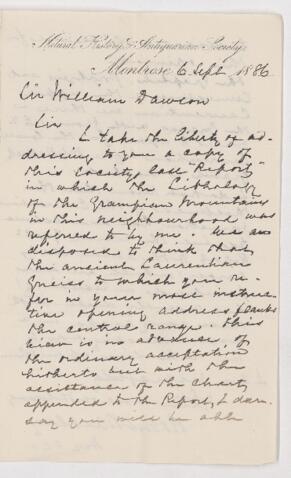 Natural History & Antiquarian Society,
Montrose 6 Sept 1886
Sir William Dawson
Sir
I take the liberty of ad-
dressing to you a copy of
this Society last "Report"
in which the Lithology
of the Grampian Mountains
in this neighbourhood was
referred to by me. We are
disposed to think that
the ancient Laurentian
Gneiss to which you re-
fer in your most instruc-
tive opening address flanks
the central range. This
view is in advance of
the ordinary acceptation
hitherto but with the
assistance of the Charts
appended to the Report, I dare-
say you will be able